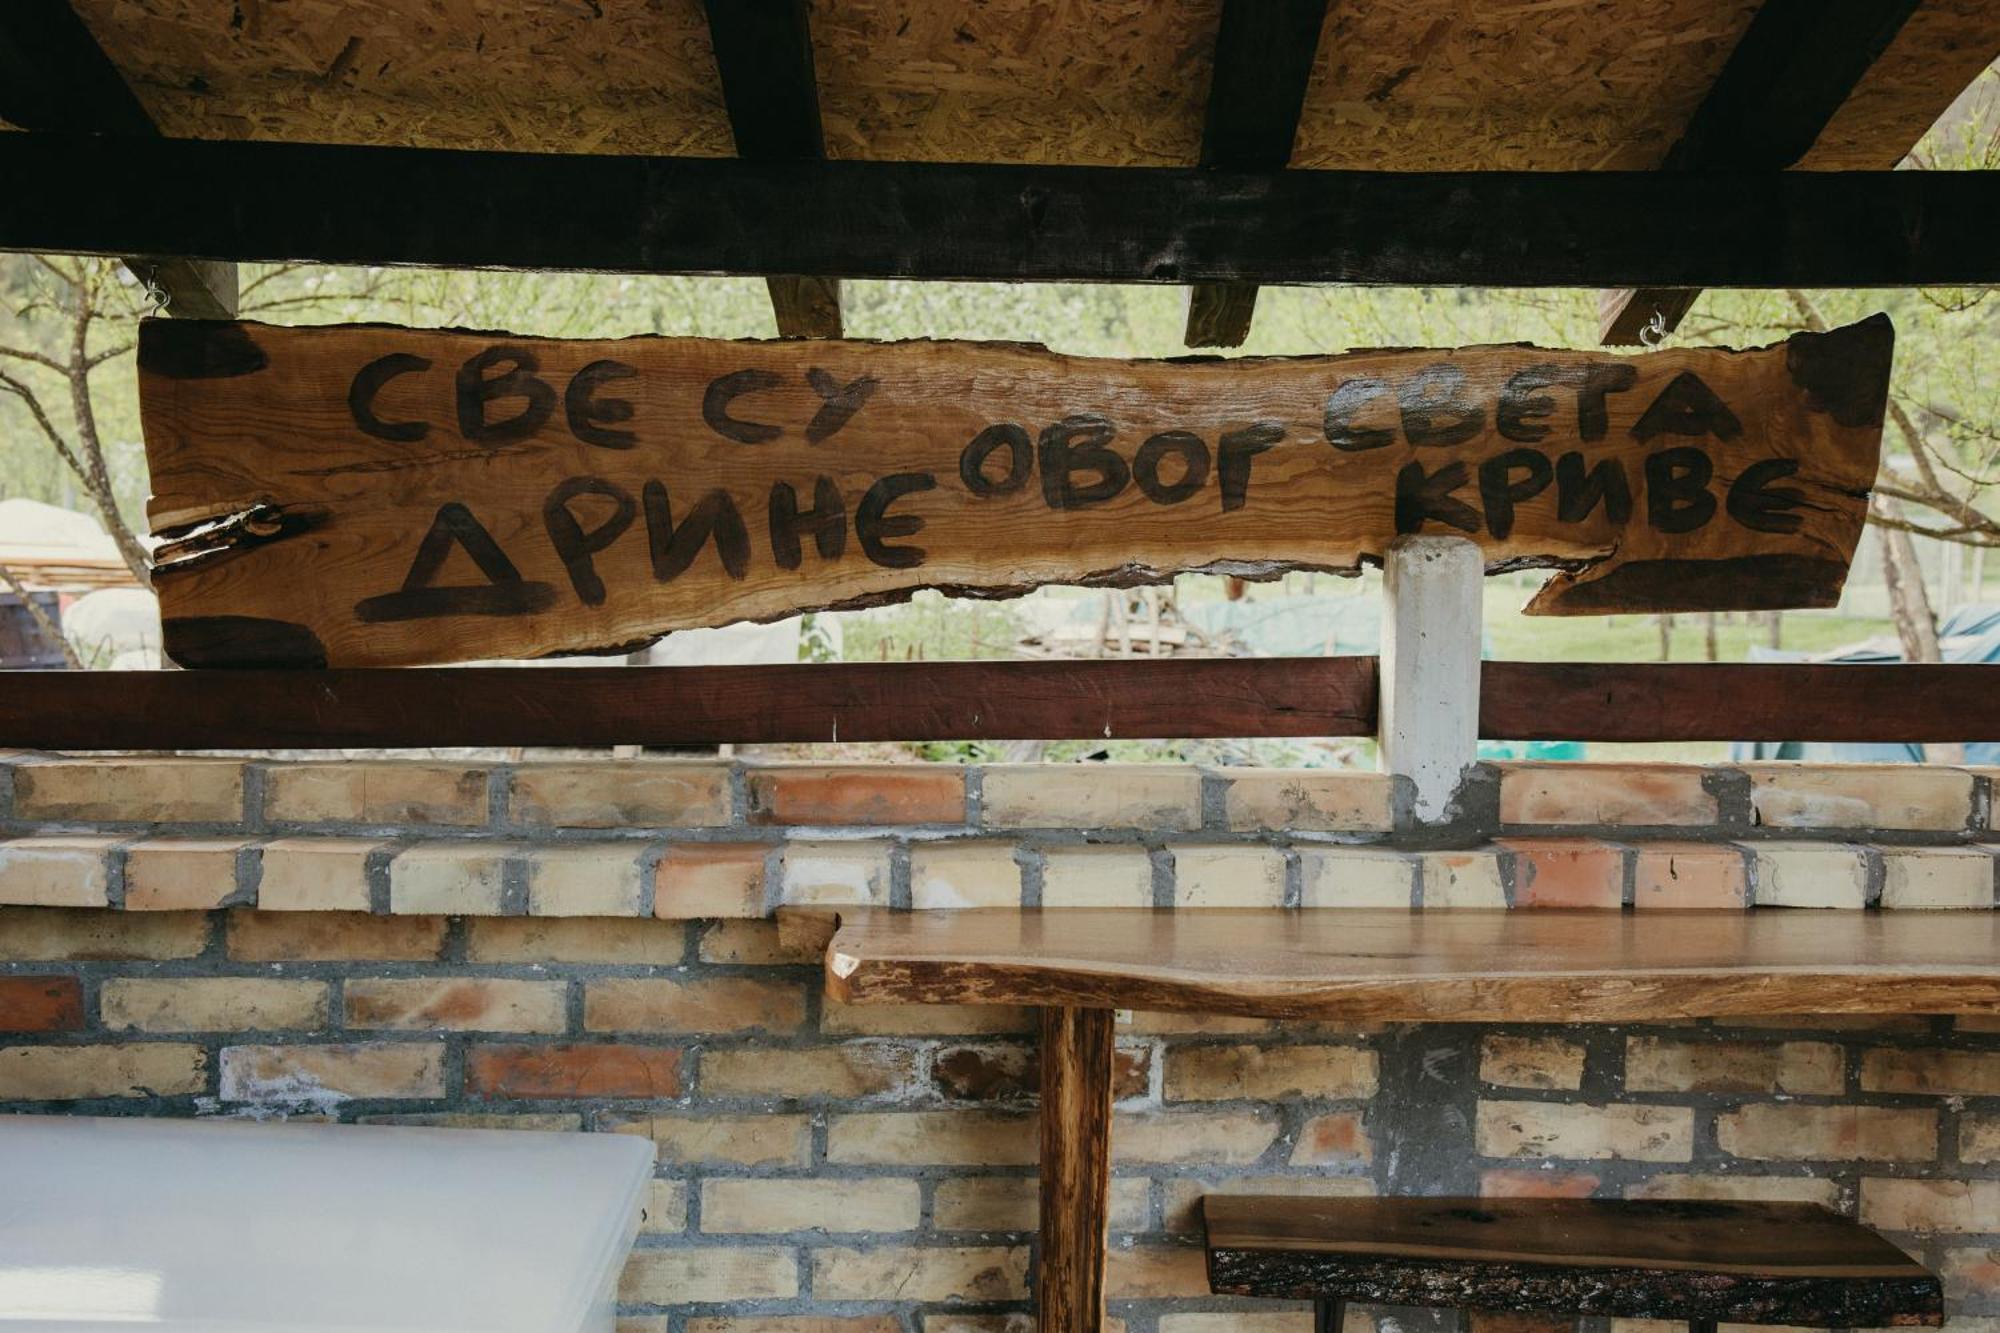 СВЕ СУ
ДРИНЕ ОВОГ СВЕТА
КРИВЕ